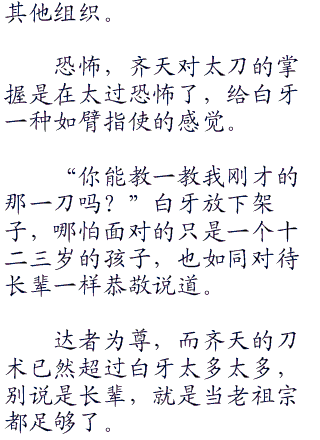 其他组织。
恐怖，齐天对太刀的掌
握是在太过恐怖了，给白牙
一种如臂指使的感觉。
“你能教一教我刚才的
那一刀吗？”白牙放下架
子，哪怕面对的只是一个十
二三岁的孩子，也如同对待
长辈一样恭敬说道。
达者为尊，而齐天的刀
术已然超过白牙太多太多，
别说是长辈，就是当老祖宗
都足够了。